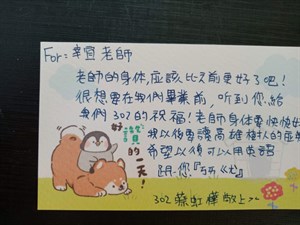 For: 宰宜老師
老師的身体,應該比之前更好了吧!
很想要在我們畢業前,听到您給
我們302的祝福!老師身体要快快好
以後要讓高雄
希望以後可以用英語
跟您『ㄎㄞ ㄍㄤˋ』
可錢的一天!
302 蘇虹樺 敬上